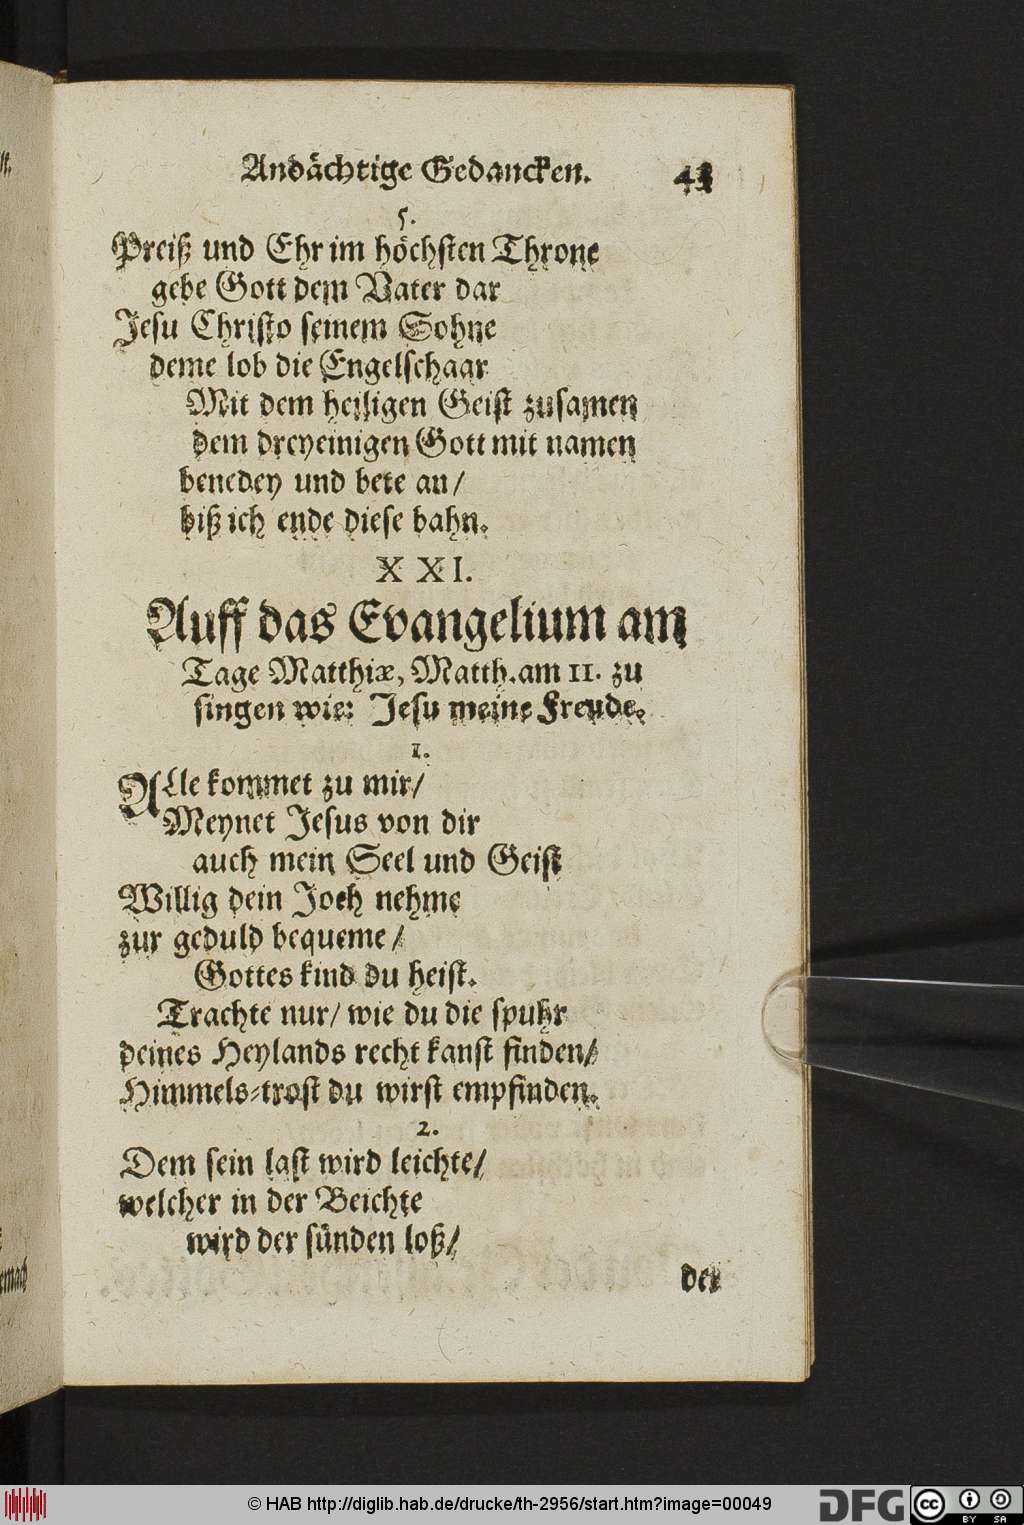 Andächtige Gedancken.
5.
Preiß und Ehr im höchsten Throne
gebe Gott dem Vater dar
Jesu Christo seinem Sohne
deme lob die Engelschaar
Mit dem heiligen Geist zusamen
dem dreyeinigen Gott mit namen
benedey und bete an /
biß ich ende diese bahn.
XXI.
Auff das Evangelium am
Tage Matthiæ, Matth. am 11. zu
singen wie: Jesu meine Freude.
1.
ALle kommet zu mir /
Meynet Jesus von dir
auch mein Seel und Geist
Willig dein Joch nehme
zur geduld bequeme /
Gottes kind du heist.
Trachte nur / wie du die spuhr
deines Heylands recht kanst finden /
Himmels-trost du wirst empfinden.
2.
Dem sein last wird leichte /
welcher in der Beichte
wird der sünden loß /
der
© HAB http://diglib.hab.de/drucke/th-2956/start.htm?image=00049
DFG
cc
BY SA